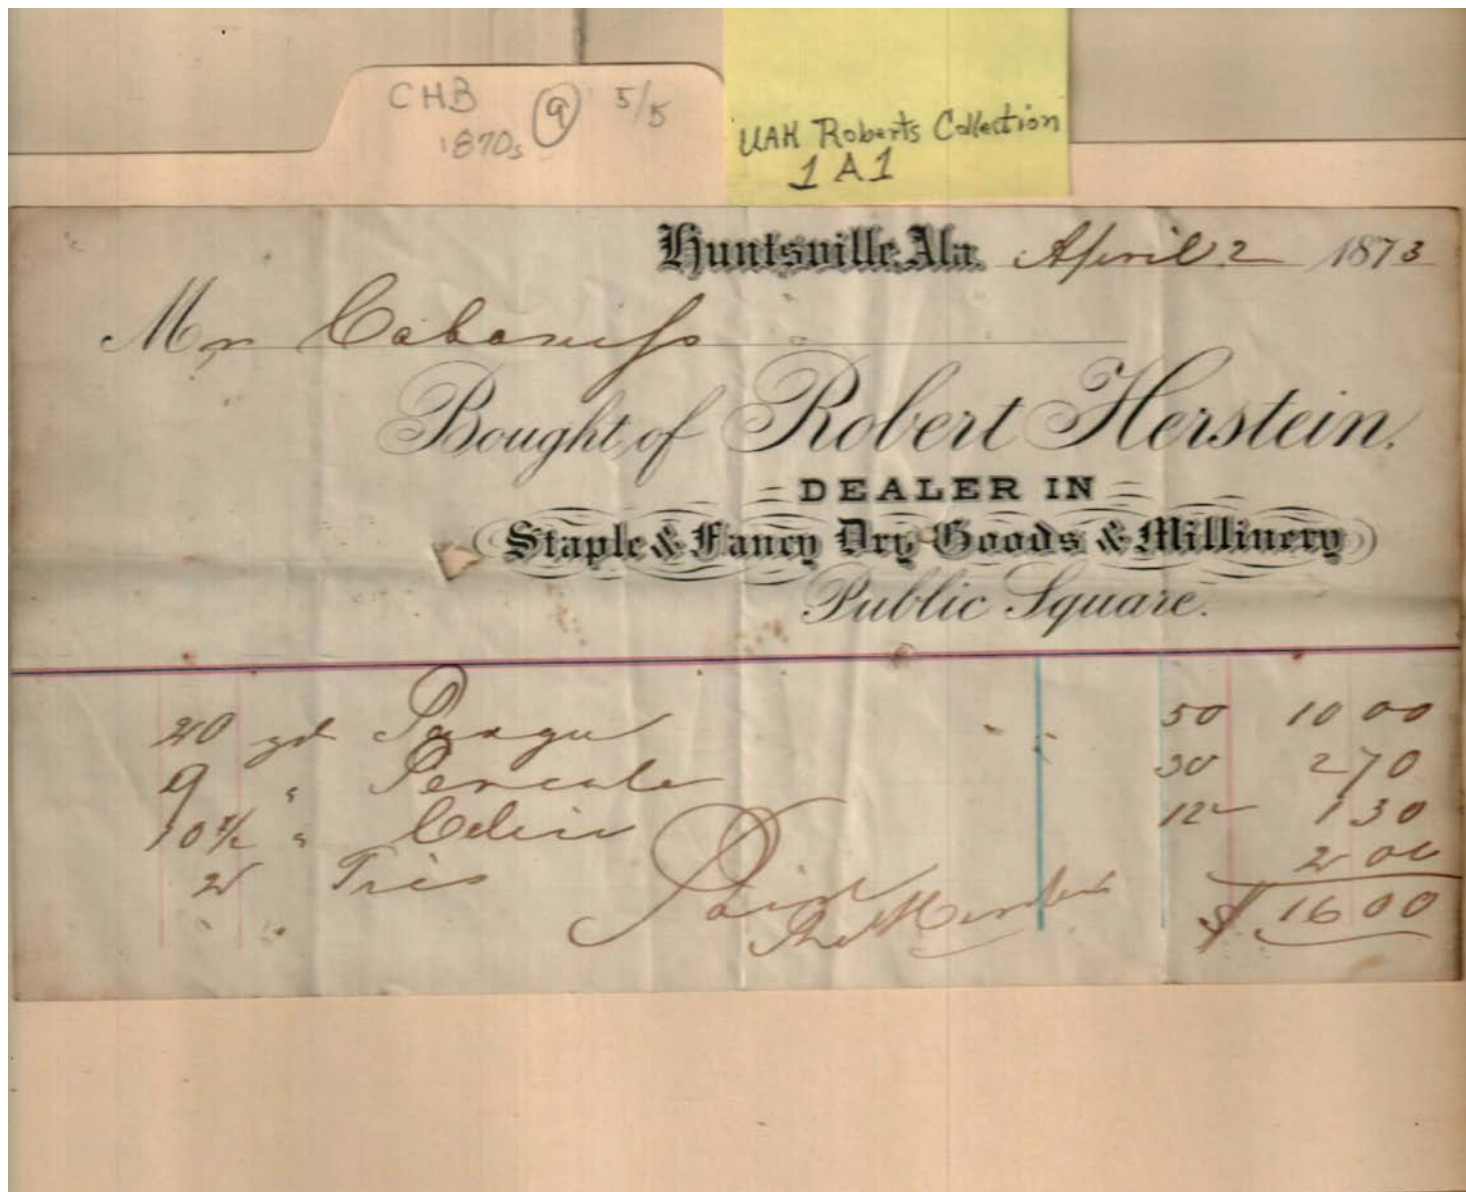 CHB 9 5/5
1870s
UAH Roberts Collection
1A1
Huntsville, Ala. April 2 1873
Mr Cabaniss
Bought of Robert Herstein.
DEALER IN
Staple & Fancy Dry Goods & Millinery
Public Square.
20 yd 50 10 00
9 " Percale 30 2 70
10 1/2 " 12 1 30
2 Ties 2 00
Paid $ 16 00